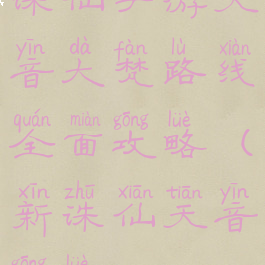 诛仙手游天
yīn dà fàn lù xiàn
音大梵路线
quán miàn gōng lüè
全面攻略（
xīn zhū xiān tiān yīn
新诛仙天音
gōng lüè